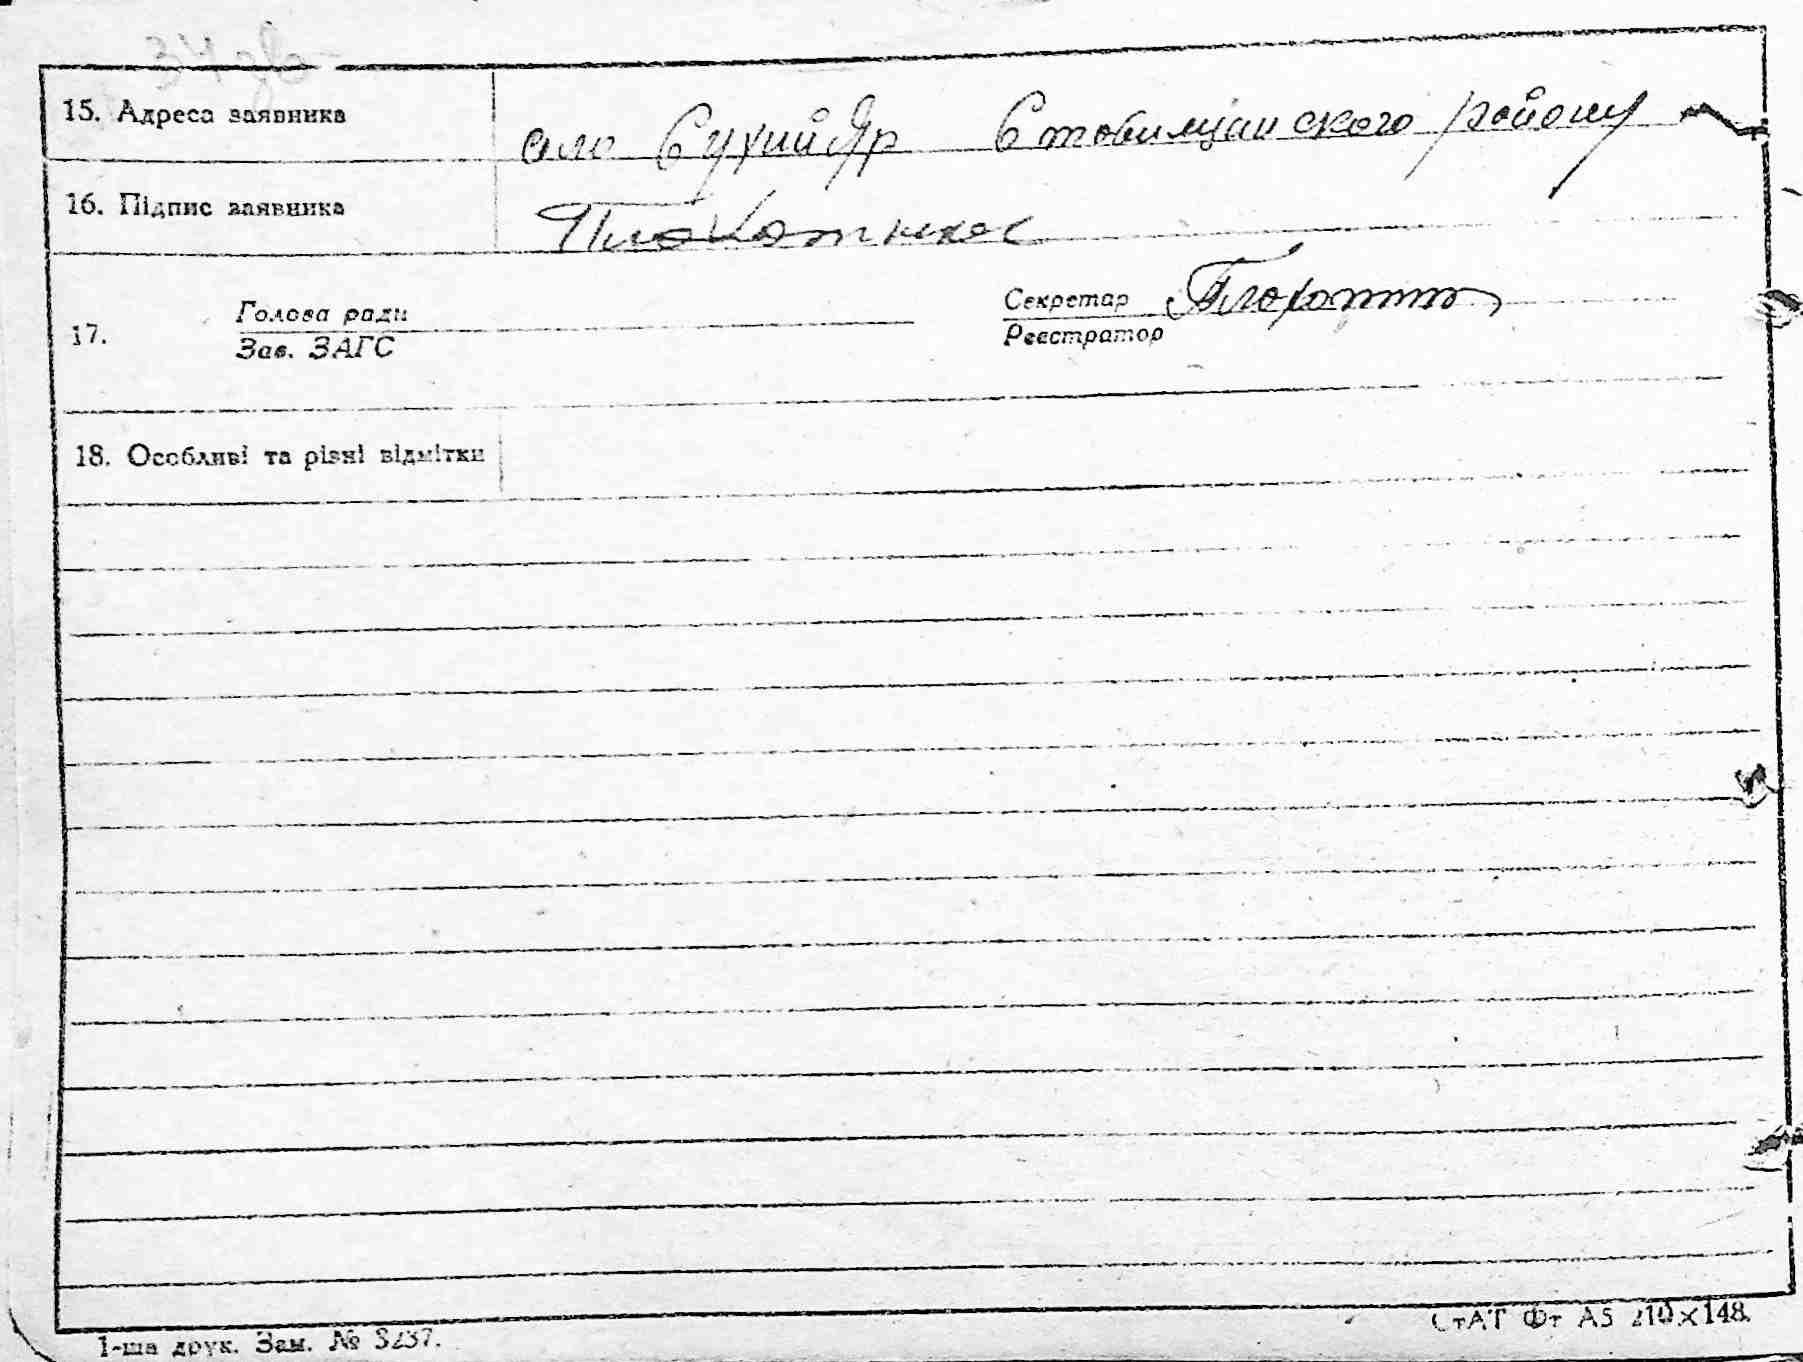 15. Адреса заявника село Сухий Яр Ставищанского району
16. Підпис заявника
17. Голова ради Секретар
Зав. ЗАГС Реєстратор
18. Особливі та різні відмітки
1-ша друк. Зам. № 3237. СтАТ Фт А5 210×148.